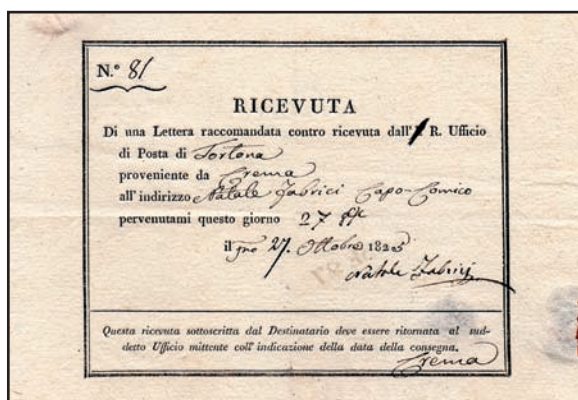 N.º 81
RICEVUTA
Di una Lettera raccomandata contro ricevuta dall' R. Ufficio
di Posta di Tortona
proveniente da Crema
all'indirizzo Natale Fabrici Capo-Comico
pervenutami questo giorno 27
il 27. Ottobre 1825
Natale Fabrici
Questa ricevuta sottoscritta dal Destinatario deve essere ritornata al sud-
detto Ufficio mittente coll' indicazione della data della consegna.
Crema